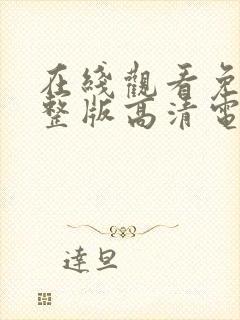 在綫觀看免
整版高清電
達旦